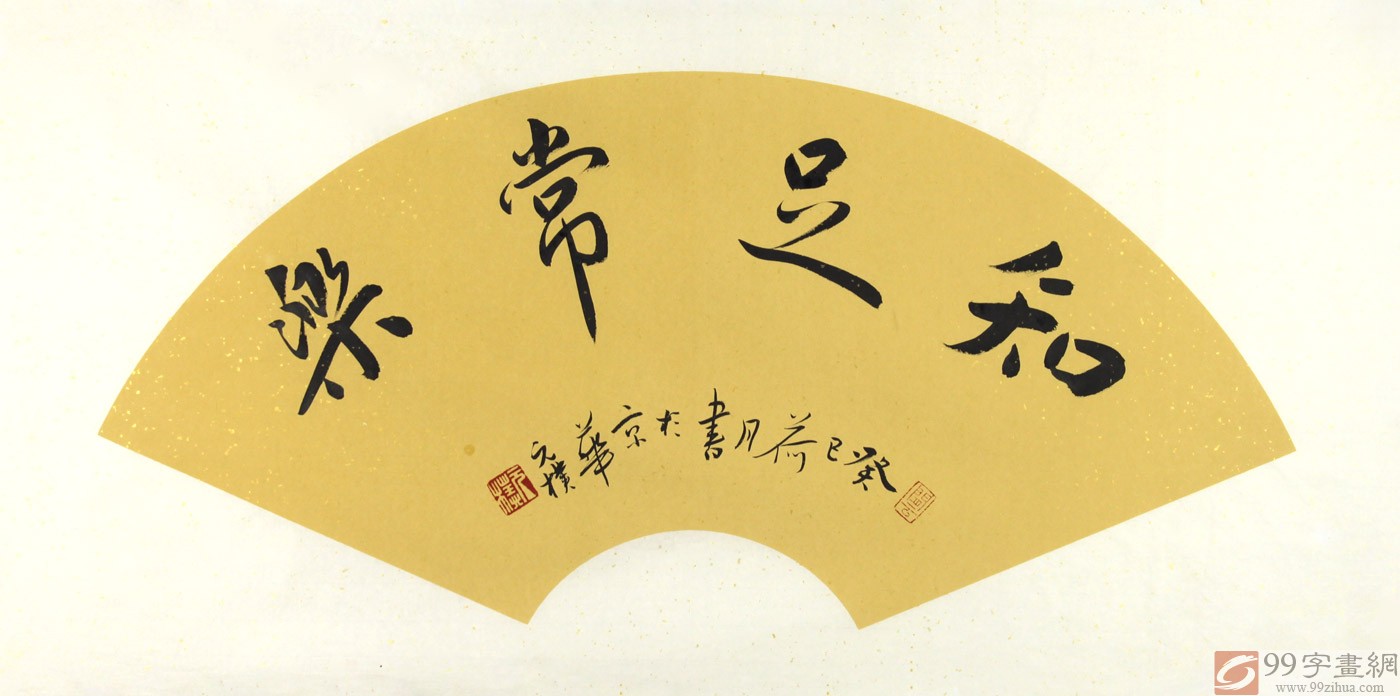 知足常樂
癸巳荷月書於京華元樸
99字畫網
www.99zihua.com